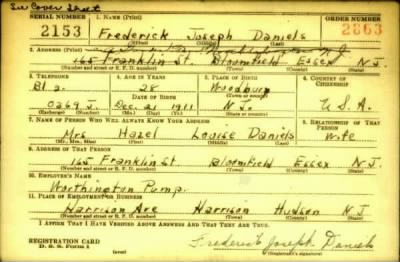 See Cover Sheet
SERIAL NUMBER 1. NAME (Print) ORDER NUMBER
2153 Frederick Joseph Daniels 2863
(First) (Middle) (Last)
2. ADDRESS (Print)
165 Franklin St. Bloomfield Essex N.J.
(Number and street or R. F. D. number) (Town) (County) (State)
3. TELEPHONE 4. AGE IN YEARS 5. PLACE OF BIRTH 6. COUNTRY OF CITIZENSHIP
Bl 2. 28 Woodbury
DATE OF BIRTH (Town or county)
0269 J. Dec. 21 1911 N.J. U.S.A.
(Exchange) (Number) (Mo.) (Day) (Yr.) (State or country)
7. NAME OF PERSON WHO WILL ALWAYS KNOW YOUR ADDRESS 8. RELATIONSHIP OF THAT PERSON
Mrs Hazel Louise Daniels Wife
(Mr., Mrs., Miss) (First) (Middle) (Last)
9. ADDRESS OF THAT PERSON
165 Franklin St Bloomfield Essex N.J.
(Number and street or R. F. D. number) (Town) (County) (State)
10. EMPLOYER'S NAME
Worthington Pump.
11. PLACE OF EMPLOYMENT OR BUSINESS
Harrison Ave Harrison Hudson N.J
(Number and street or R. F. D. number) (Town) (County) (State)
I AFFIRM THAT I HAVE VERIFIED ABOVE ANSWERS AND THAT THEY ARE TRUE.
REGISTRATION CARD Frederick Joseph Daniels
D. S. S. Form 1 (over) (Registrant's signature)